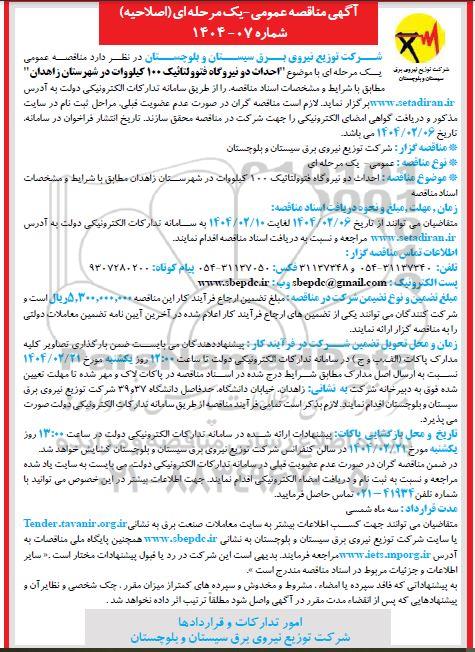 آگهی مناقصه عمومی -یک مرحله ای (اصلاحیه)
شماره ۰۷-۱۴۰۴
شرکت توزیع نیروی برق
سیستان و بلوچستان
شرکت توزیع نیروی برق سیستان و بلوچستان در نظر دارد مناقصه عمومی
یک مرحله ای با موضوع "احداث دو نیروگاه فتوولتائیک ۱۰۰ کیلووات در شهرستان زاهدان"
مطابق با شرایط و مشخصات اسناد مناقصه، را از طریق سامانه تدارکات الکترونیکی دولت به آدرس
www.setadiran.ir برگزار نماید. لازم است مناقصه گران در صورت عدم عضویت قبلی، مراحل ثبت نام در سایت
مذکور و دریافت گواهی امضای الکترونیکی را جهت شرکت در مناقصه محقق سازند. تاریخ انتشار فراخوان در سامانه،
تاریخ ۱۴۰۴/۰۲/۰۶ می باشد.
* مناقصه گزار : شرکت توزیع نیروی برق سیستان و بلوچستان
* نوع مناقصه : عمومی - یک مرحله ای
* موضوع مناقصه : احداث دو نیروگاه فتوولتائیک ۱۰۰ کیلووات در شهرستان زاهدان مطابق با شرایط و مشخصات
اسناد مناقصه
زمان , مهلت , مبلغ و نحوه دریافت اسناد مناقصه:
متقاضیان می توانند از تاریخ ۱۴۰۴/۰۲/۰۶ لغایت ۱۴۰۴/۰۲/۱۰ به سامانه تدارکات الکترونیکی دولت به آدرس
www.setadiran.ir مراجعه و نسبت به دریافت اسناد مناقصه اقدام نمایند.
اطلاعات تماس مناقصه گزار :
تلفن: ۳۱۱۳۷۳۴۰-۰۵۴ و ۳۱۱۳۷۳۴۸ فکس: ۳۱۱۳۷۰۵۰-۰۵۴ پیام کوتاه: ۹۳۰۷۲۸۰۲۰۰
پست الکترونیک : sbepdc@gmail.com وب : www.sbepdc.ir
مبلغ تضمین و نوع تضمین شرکت در مناقصه : مبلغ تضمین ارجاع فرآیند کار این مناقصه ۵,۳۰۰,۰۰۰,۰۰۰ریال است و
شرکت کنندگان می توانند یکی از تضمین های ارجاع فرآیند کار اعلام شده در آخرین آیین نامه تضمین معاملات دولتی
را به مناقصه گزار ارائه نمایند.
زمان و محل تحویل تضمین شرکت در فرآیند کار : پیشنهاددهندگان می بایست ضمن بارگذاری تصاویر کلیه
مدارک پاکات (الف،ب و ج ) در سامانه تدارکات الکترونیکی دولت تا ساعت ۱۲:۰۰ روز یکشنبه مورخ ۱۴۰۴/۰۲/۲۱
نسبت به ارسال اصل مدارک مطابق شرایط درج شده در اسناد مناقصه در پاکات لاک و مهر شده تا مهلت تعیین
شده فوق به دبیرخانه شرکت به نشانی: زاهدان، خیابان دانشگاه، حدفاصل دانشگاه ۳۷و۳۹ شرکت توزیع نیروی برق
سیستان و بلوچستان اقدام نمایند. لازم بذکر است تمامی فرآیند مناقصه از طریق سامانه تدارکات الکترونیکی دولت صورت
می پذیرد.
تاریخ و محل بازگشایی پاکات: پیشنهادات ارائه شده در سامانه تدارکات الکترونیکی دولت در ساعت ۱۳:۰۰ روز
یکشنبه مورخ ۱۴۰۴/۰۲/۲۱ در سالن کنفرانس شرکت توزیع نیروی برق سیستان و بلوچستان گشایش خواهد شد.
در ضمن مناقصه گران در صورت عدم عضویت قبلی در سامانه تدارکات الکترونیکی دولت، می بایست به سایت یاد شده
مراجعه و نسبت به ثبت نام و دریافت امضاء الکترونیکی اقدام نمایند. جهت اطلاعات بیشتر در این خصوص می توانید با
شماره تلفن ۴۱۹۳۴-۰۲۱ تماس حاصل فرمایید.
مدت قرارداد : سه ماه شمسی
متقاضیان می توانند جهت کسب اطلاعات بیشتر به سایت معاملات صنعت برق به نشانی Tender.tavanir.org.ir
یا سایت شرکت توزیع نیروی برق سیستان و بلوچستان به نشانی www.sbepdc.ir همچنین پایگاه ملی مناقصات به
آدرس www.iets.mporg.ir مراجعه فرمایند. بدیهی است این شرکت در رد یا قبول پیشنهادات مختار است .« سایر
اطلاعات و جزئیات مربوط در اسناد مناقصه مندرج است ».
به پیشنهاداتی که فاقد سپرده یا امضاء , مشروط و مخدوش و سپرده های کمتراز میزان مقرر , چک شخصی و نظایر آن و
پیشنهادهایی که پس از انقضاء مدت مقرر در آگهی واصل شود مطلقاً ترتیب اثر داده نخواهد شد .
امور تدارکات و قراردادها
شرکت توزیع نیروی برق سیستان و بلوچستان